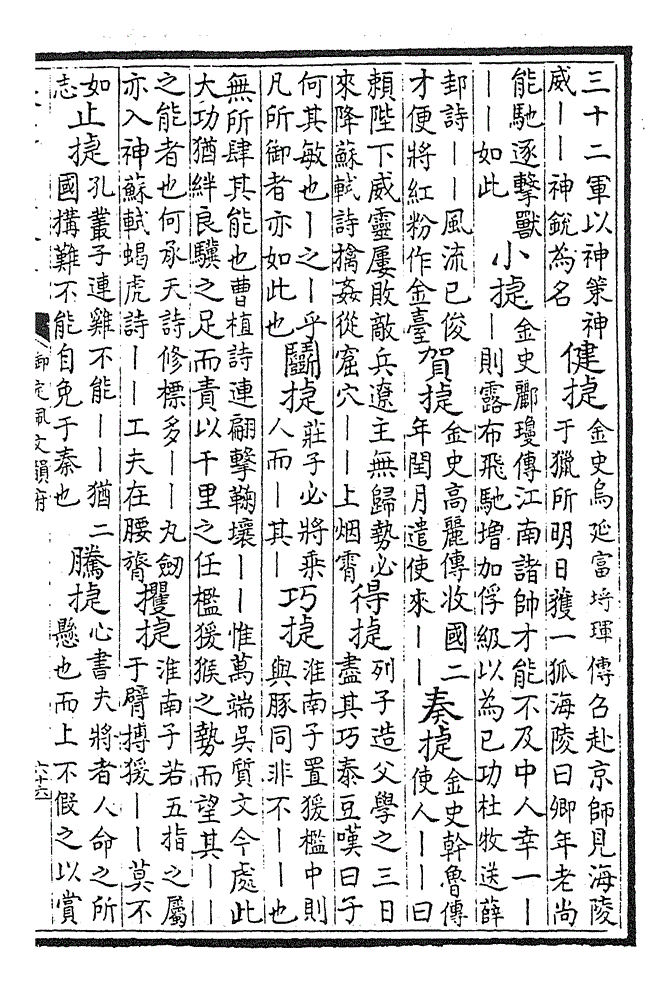 三十二軍以神策神
威丨丨神銳為名
健捷
金史烏延富埒琿傳召赴京師見海陵
于獵所明日獲一狐海陵曰卿年老尚
能馳逐擊獸
丨丨如此
小捷
金史酈瓊傳江南諸帥才能不及中人幸一丨
丨則露布飛馳增加俘級以為已功杜牧送薛
邽詩丨丨風流已俊
才便將紅粉作金臺
賀捷
金史高麗傳收國二
年閏月遣使來丨丨
奏捷
金史斡魯傳
使人丨丨曰
賴陛下威靈屢敗敵兵遼主無歸勢必
來降蘇軾詩擒姦從窟穴丨丨上烟霄
得捷
列子造父學之三日
盡其巧泰豆嘆曰子
何其敏也丨之丨乎
凡所御者亦如此也
鬭捷
莊子必將乘
人而丨其丨
巧捷
淮南子置猨檻中則
與豚同非不丨丨也
無所肆其能也曹植詩連翩擊鞠壤丨丨惟萬端吳質文今處此
大功猶絆良驥之足而責以千里之任檻猨猴之勢而望其丨丨
之能者也何承天詩修標多丨丨九劒
亦入神蘇軾蝎虎詩丨丨工夫在腰膂
攫捷
淮南子若五指之屬
于臂搏援丨丨莫不
如
志
止捷
孔叢子連雞不能丨丨猶二
國搆難不能自免于秦也
騰捷
心書夫將者人命之所
懸也而上不假之以賞
御定佩文韻府